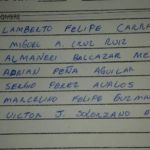 NOMBRE
LAMBERTO FELIPE
MIGUEL A. CRUZ RUIZ
ALMANERI BALCAZAR
ADRIAN PEÑA AGUILAR
SERGIO PEREZ AVALOS
MARCELINO FELIPE GUZMAN
VICTOR J. SOLORZANO